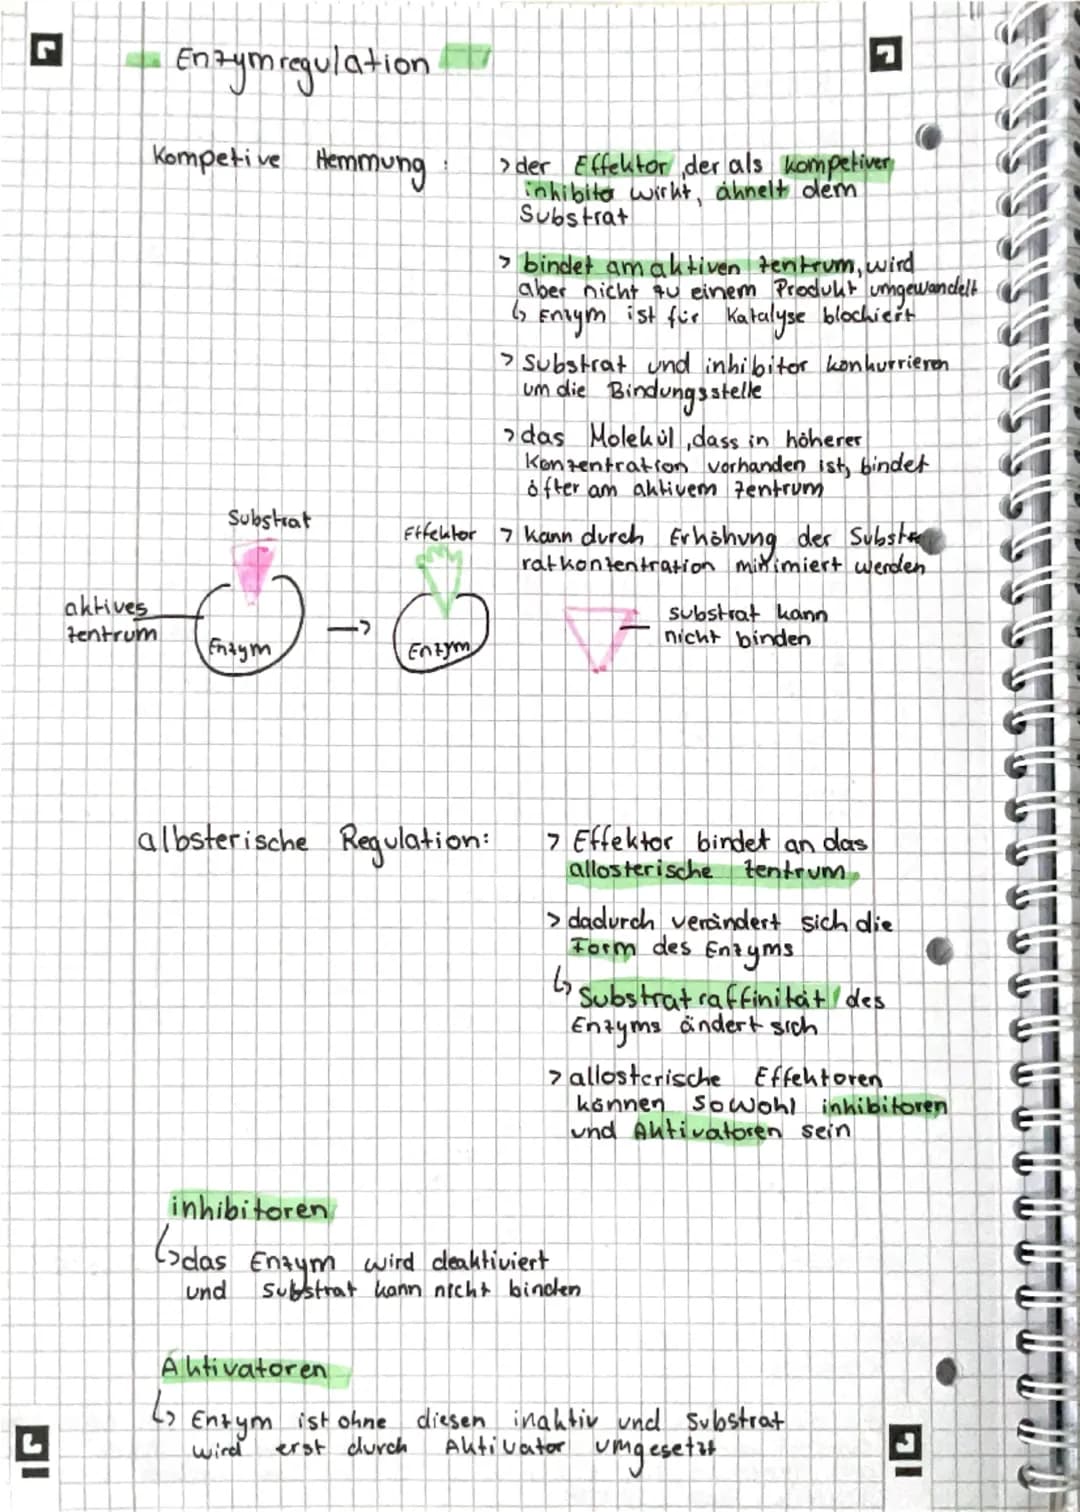 Enzymregulation
Kompetive Hemmung :
> der Effektor, der als kompetiver
inhibito wirkt, ähnelt dem
Substrat
> bindet am aktiven Zentrum, wird
aber nicht zu einem Produkt umgewandelt
↳ Enzym ist für Katalyse blockiert
> Substrat und inhibitor konkurrieren
um die Bindungsstelle
> das Molekül, dass in höherer
Konzentration vorhanden ist, bindet
öfter am aktivem Zentrum
> kann durch Erhöhung der Subst
ratkontentration minimiert werden
Substrat
Effektor
aktives
Zentrum
Enzym
->
Enzym
substrat kann
nicht binden
allosterische Regulation:
> Effektor bindet an das
allosterische Zentrum
> dadurch verändert sich die
Form des Enzyms
↳ Substratraffinität des
Enzyms ändert sich
> allosterische Effektoren
können sowohl inhibitoren
und Aktivatoren sein
inhibitoren
↳ das Enzym wird deaktiviert
und Substrat kann nicht binden
Aktivatoren
↳ Enzym ist ohne diesen inaktiv und Substrat
wird erst durch Aktivator umgesetzt